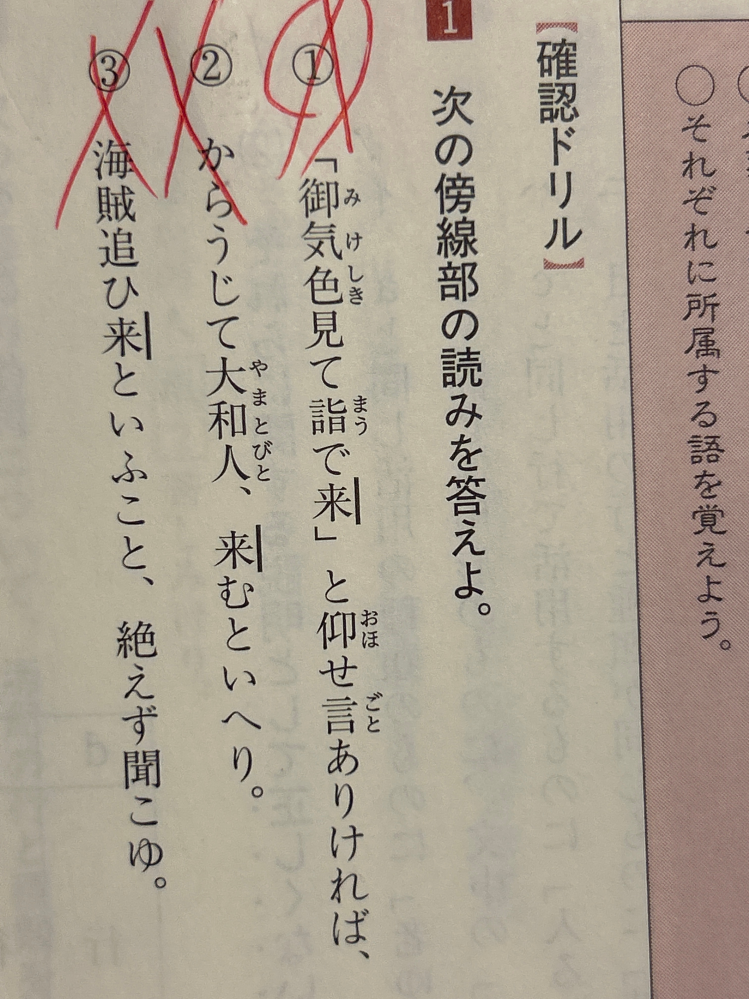 ○それぞれに所属する語を覚えよう。
【確認ドリル】
1 次の傍線部の読みを答えよ。
① 「御気色見て詣で来」と仰せ言ありければ、
み けしき まう おほ ごと
② からうじて大和人、来むといへり。
やまとびと
③ 海賊追ひ来といふこと、絶えず聞こゆ。